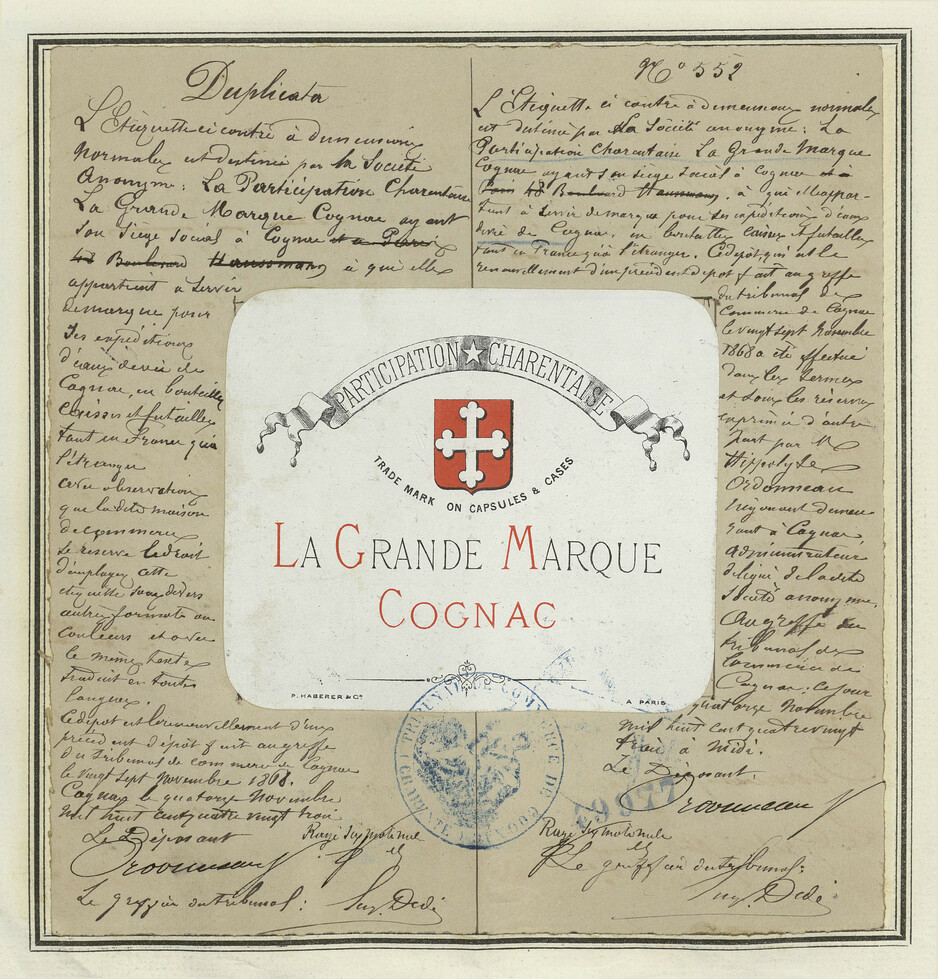 Duplicata
L'Etiquette ci contre à dimensions
Normales est destinée par la Société
Anonyme: La Participation Charentaise
La Grande Marque Cognac ayant
son siège social à Cognac et à Paris
48 Boulevard Haussmann, à qui elle
appartient à servir
de marque pour
ses expéditions
d'eaux de vie de
Cognac, en bouteilles
caisses et futailles
tant en France qu'à
l'étranger
avec observation
que la dite maison
de commerce
se réserve le droit
d'employer cette
étiquette sous divers
autres formats ou
couleurs et avec
le même texte
traduit en toutes
langues.
Ce dépôt est le renouvellement d'un
précédent dépôt fait au greffe
du tribunal de commerce de Cognac
le vingt sept Novembre 1868.
Cognac le quatorze Novembre
mil huit cent quatre vingt trois
Le Déposant
Rayé six mots nuls
Ordonneau
Le greffier du tribunal:
Nº 552
L'Etiquette ci contre à dimensions normales
est destinée par la Société anonyme: La
Participation Charentaise La Grande Marque
Cognac ayant son siège social à Cognac et à
Paris 48 Boulevard Haussmann, à qui elle appar-
tient à servir de marque pour ses expéditions d'eaux
de vie de Cognac, en bouteilles caisses et futailles
tant en France qu'à l'étranger. Ce dépôt, qui est le
renouvellement d'un précédent dépôt fait au greffe
du tribunal de
Commerce de Cognac
le vingt sept Novembre
1868 a été effectué
dans les termes
et sous les réserves
exprimées d'autre
part par M
Hippolyte
Ordonneau
négociant demeu-
rant à Cognac,
administrateur
délégué de la dite
Société anonyme,
Au greffe du
tribunal de
Commerce de
Cognac: ce jour
quatorze Novembre
mil huit cent quatre vingt
trois à midi.
Le Déposant:
Ordonneau
Rayé six mots nuls
Le greffier du tribunal:
PARTICIPATION CHARENTAISE
TRADE MARK ON CAPSULES & CASES
LA GRANDE MARQUE
COGNAC
P. HABERER & Cie
A PARIS
TRIBUNAL DE COMMERCE DE COGNAC (CHARENTE)